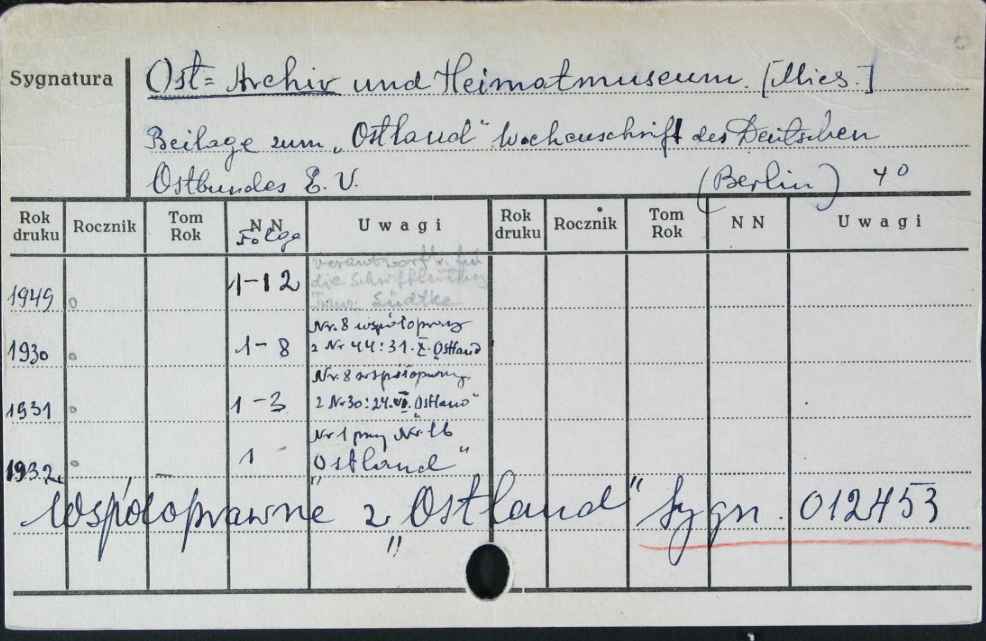 Sygnatura
Ost=Archiv und Heimatmuseum. [Mies.]
Beilage zum „Ostland" Wochenschrift des Deutschen
Ostbundes E. V. (Berlin) 4°
Rok druku Rocznik Tom Rok NN Folge Uwagi Rok druku Rocznik Tom Rok NN Uwagi
1949 1-12 verantwortl. für
die Schriftleitung
Franz Lüdtke
1930 1-8 Nr. 8 współoprawny
z Nr 44: 31. X. Ostland
1931 1-3 Nr. 8 współoprawny
z Nr 30: 24. VII. „Ostland"
1932 1- Nr 1 przy Nr. 16
„Ostland"
Współoprawne z „Ostland" Sygn. 012453